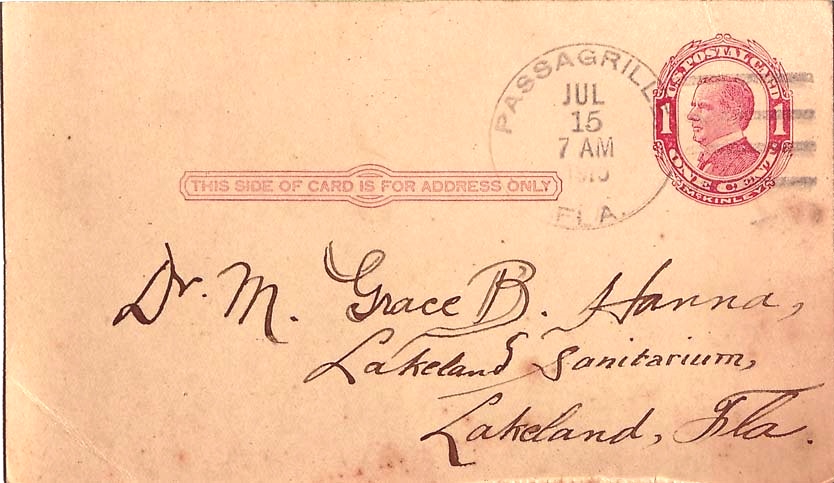 PASSAGRILL
JUL
15
7 AM
FLA.
U.S. POSTAL CARD
1 1
ONE CENT
McKINLEY
THIS SIDE OF CARD IS FOR ADDRESS ONLY
Dr. M. Grace B. Hanna,
Lakeland Sanitarium,
Lakeland, Fla.